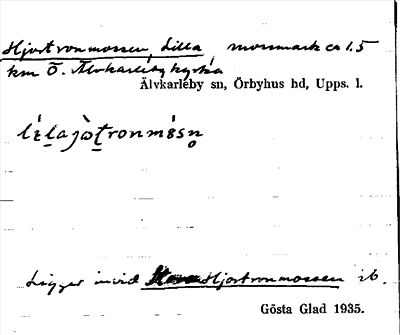 Hjortronmossen, Lilla, mossmark ca 1.5
km Ö. Älvkarleby kyrka
Älvkarleby sn, Örbyhus hd, Upps. l.
Ligger invid Stora Hjortronmossen ib.
Gösta Glad 1935.